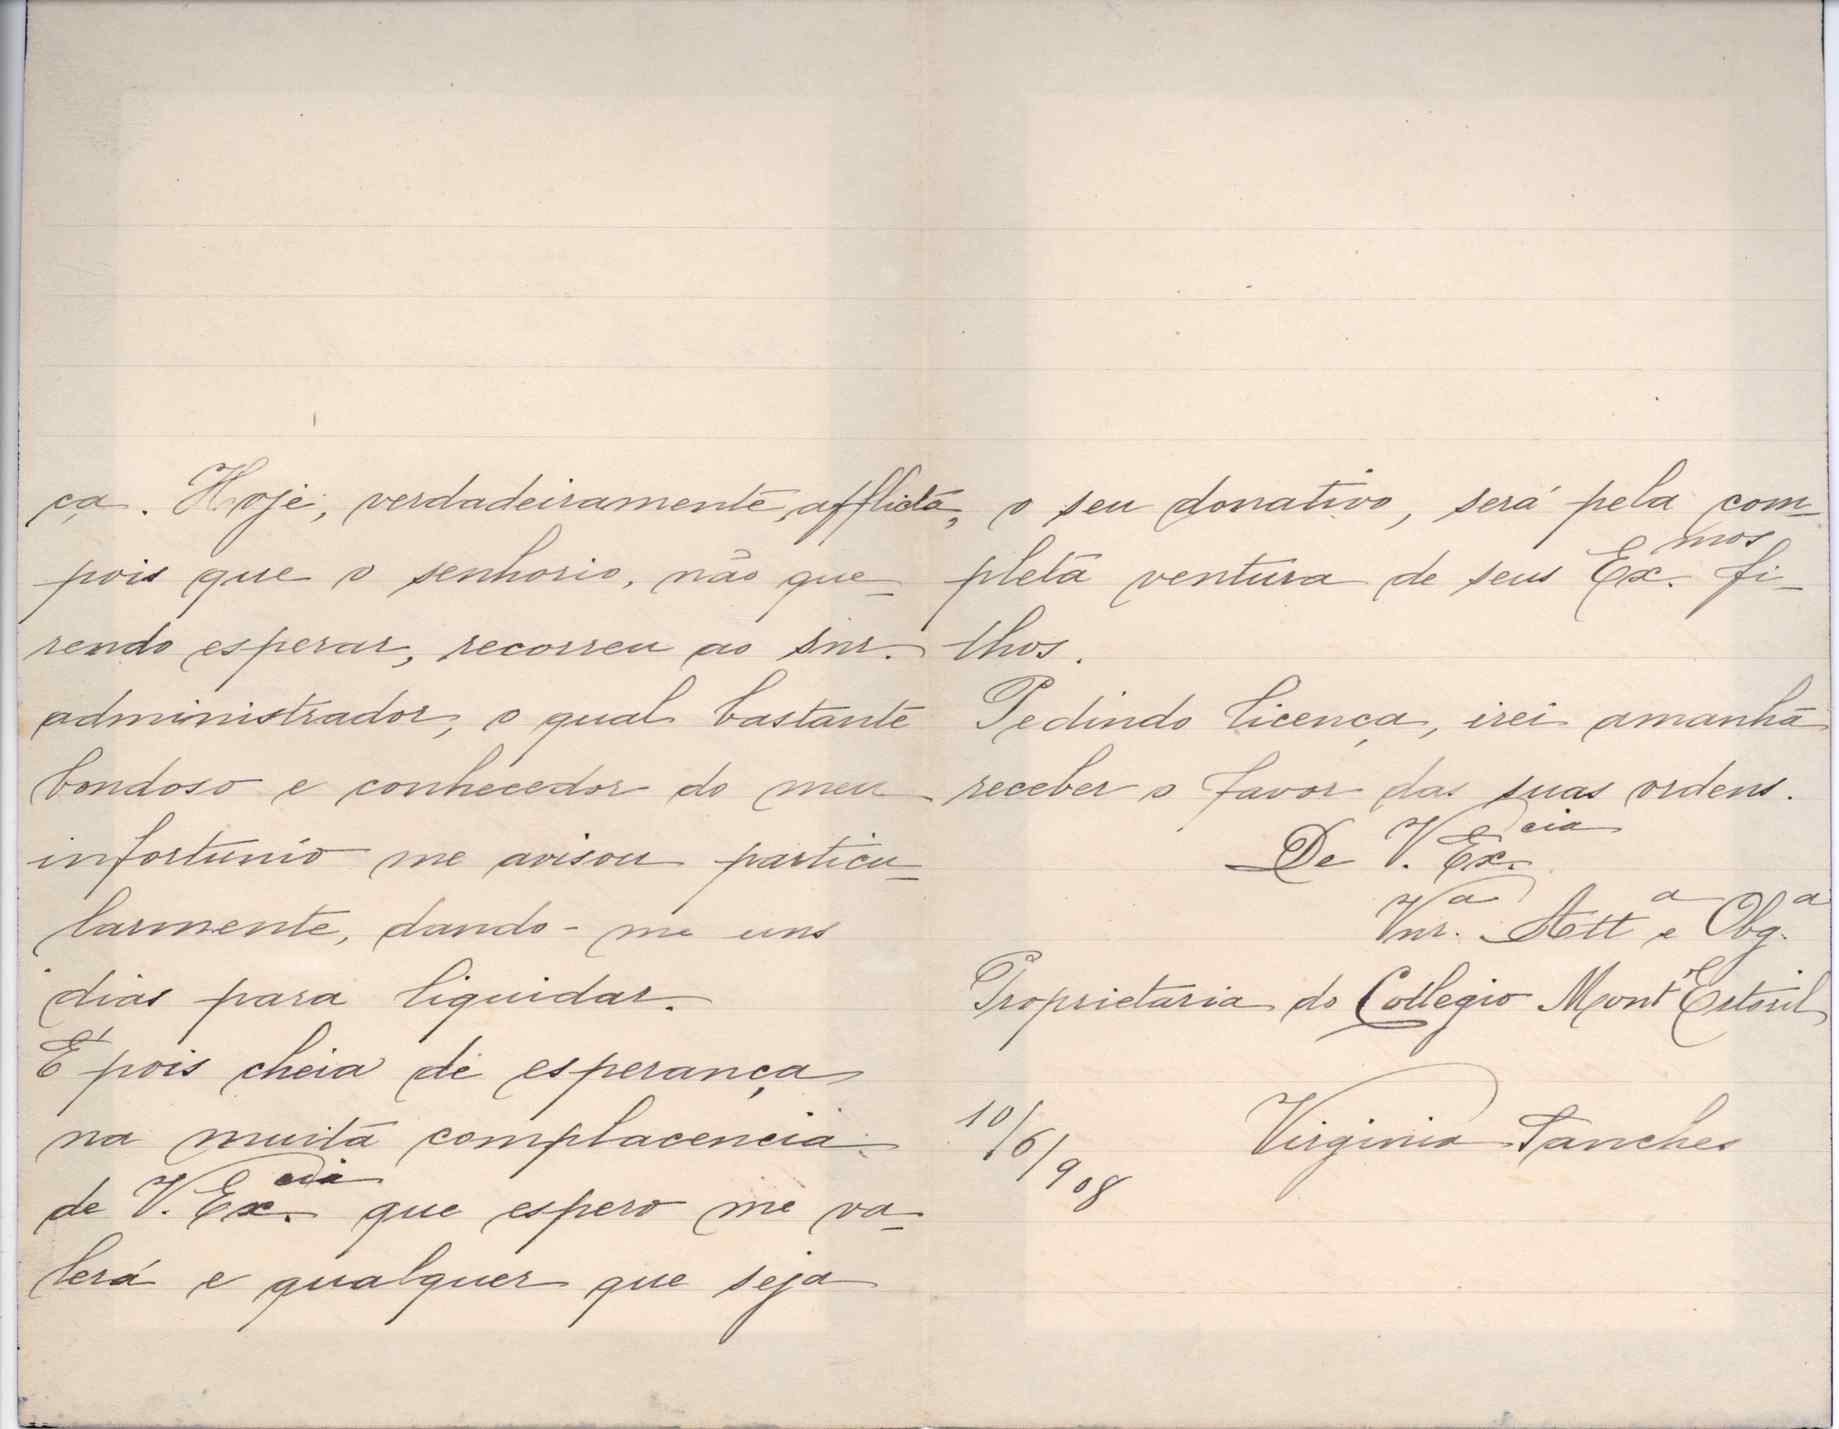 ça. Hoje, verdadeiramente, afflicta,
pois que o senhorio, não que-
rendo esperar, recorreu ao snr.
administrador, o qual bastante
bondoso e conhecedor do meu
infortunio me avisou particu-
larmente, dando-me uns
dias para liquidar.
É pois cheia de esperança
na muita complacencia
de V. Ex.cia que espero me va-
lerá e qualquer que seja
o seu donativo, será pela com-
pleta ventura de seus Ex.mos fi-
lhos.
Pedindo licença, irei amanhã
receber o favor das suas ordens.
De V. Ex.cia
Vnr.a Att.a e Obg.a
Proprietaria do Collegio Mont'Estoril
10/6/908 Virginia Sanches